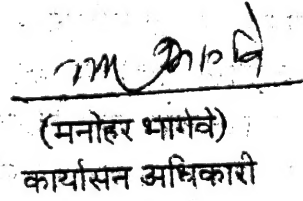 (मनोहर भागेवे)
कार्यासन अधिकारी